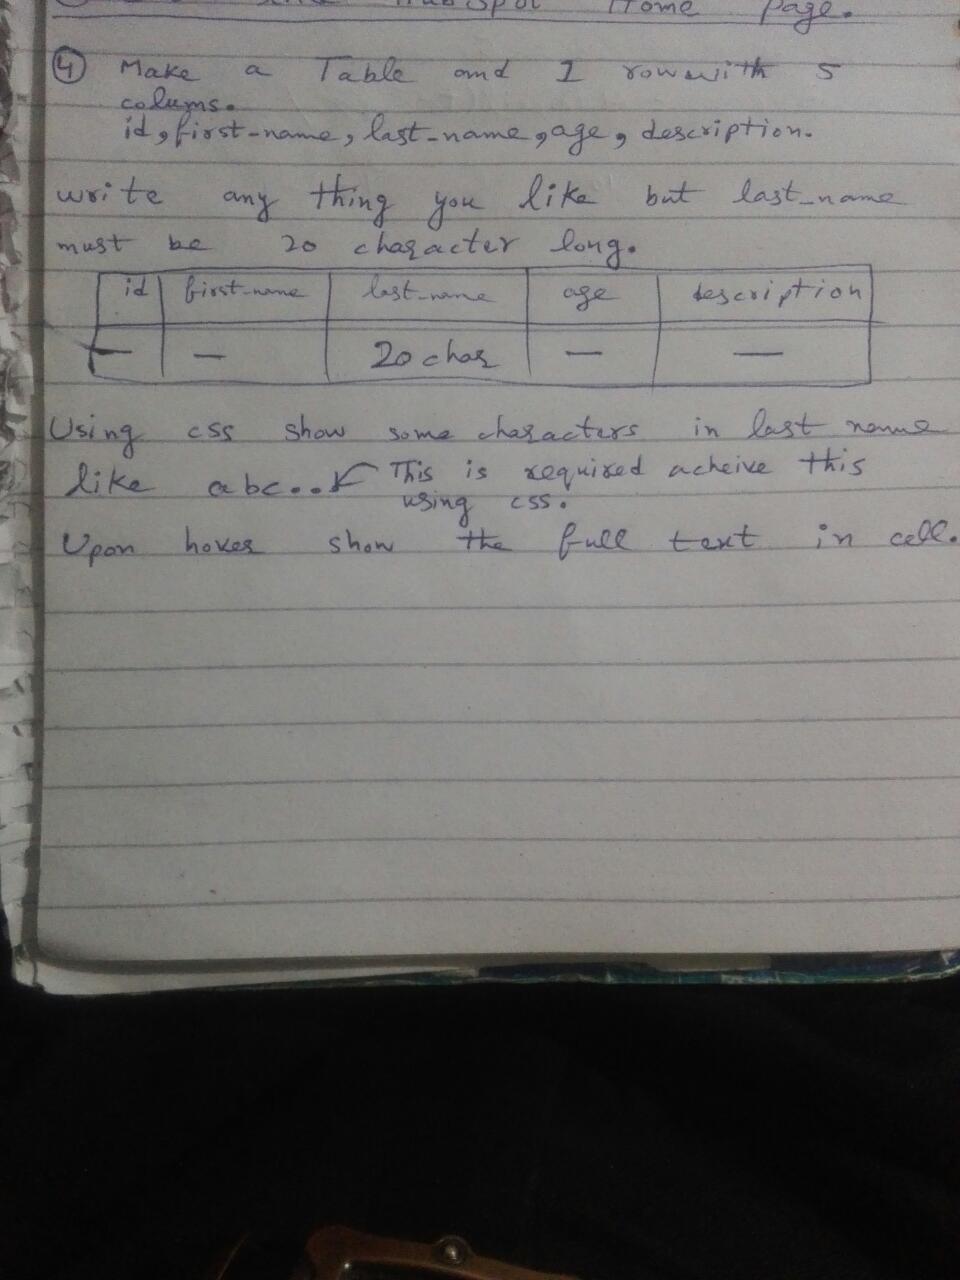 HubSpot Home Page.
4 Make a Table and 1 row with 5
colums.
id, first-name, last-name, age, description.
write any thing you like but last_name
must be 20 character long.
id first-name last-name age description
— — 20 char — —
Using css show some characters in last name
like abc.. This is required acheive this
using css.
Upon hover show the full text in cell.